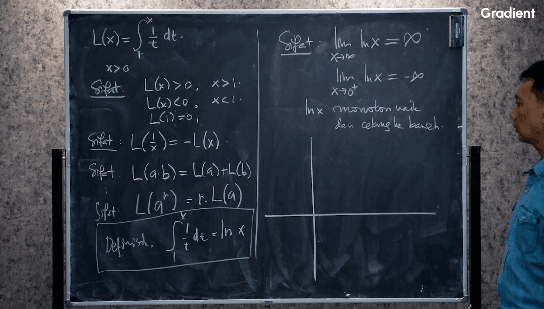 Gradient
L(x) = ∫₁ˣ 1/t dt.
x>0
Sifat L(x) > 0, x>1.
L(x) < 0, x<1.
L(1) = 0,
Sifat: L(1/x) = -L(x).
Sifat L(a·b) = L(a)+L(b)
Sifat L(aʳ) = r.L(a)
Definisi. ∫₁ˣ 1/t dt = ln x
Sifat: lim x→∞ ln x = ∞
lim x→0⁺ ln x = -∞
ln x monoton naik
dan cekung ke bawah.